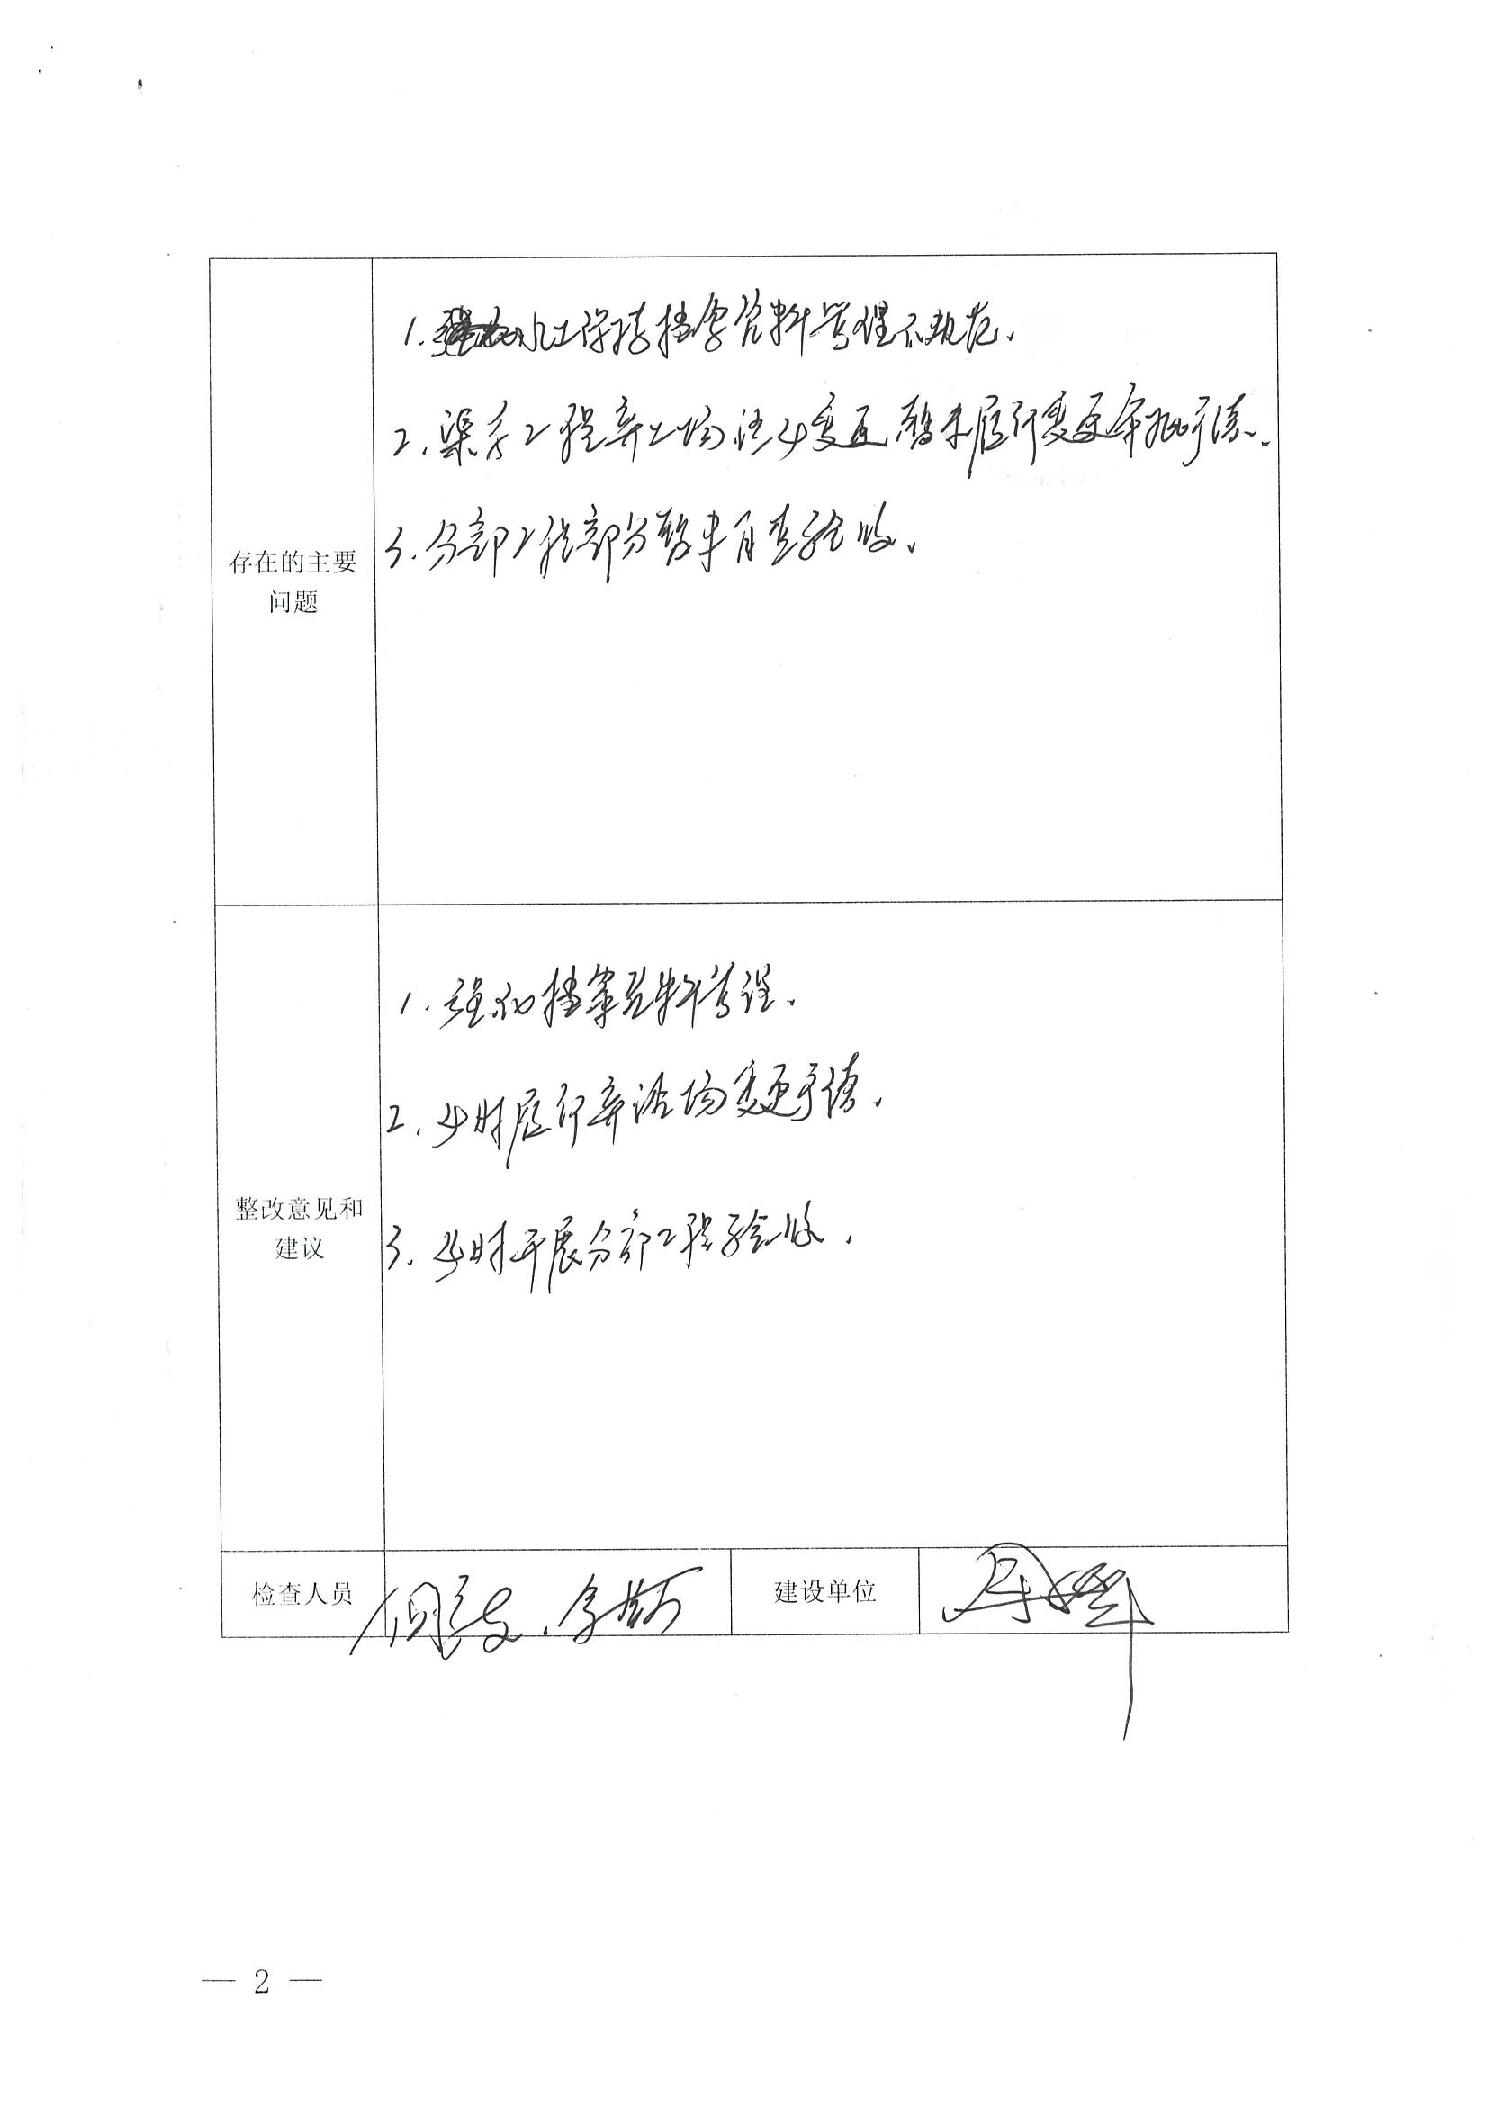 1. 水土保持档案资料管理不规范.
2. 渠系工程弃土场位少变更 暂未履行变更审批手续.
存在的主要
问题
3. 分部工程部分暂未自查验收.
1. 强化档案资料管理.
2. 及时履行弃渣场变更手续.
整改意见和
建议
3. 及时开展分部工程验收.
检查人员
建设单位
— 2 —